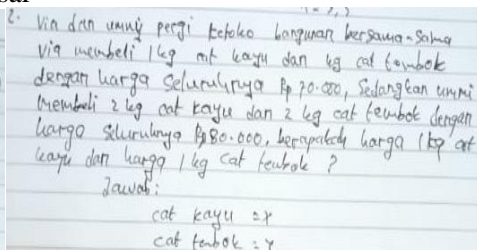 2. Via dan ummi pergi ketoko bangunan bersama-sama
via membeli 1 kg cat kayu dan kg cat tembok
dengan harga seluruhnya Rp 70.000, Sedangkan ummi
membeli 2 kg cat kayu dan 2 kg cat tembok dengan
harga seluruhnya Rp 80.000, berapakah harga 1 kg cat
kayu dan harga 1 kg cat tembok ?
Jawab :
cat kayu = x
cat tembok = y